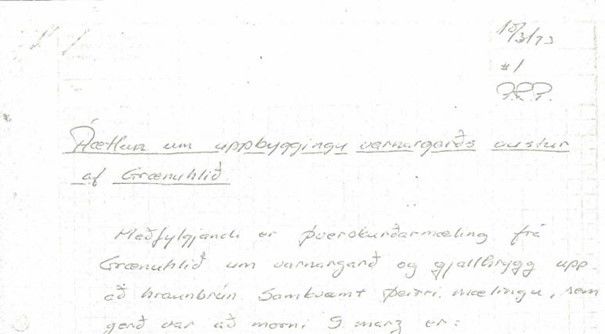 10/3/73
#1
P.P.P.
Áætlun um uppbyggingu varnargarðs austur
af Grænuhlíð
Meðfylgjandi er þverskurðarmæling frá
Grænuhlíð um varnargarð og gjallhrygg upp
að hraunbrún. Samkvæmt þeirri mælingu, sem
gerð var að morni 9 marz er: